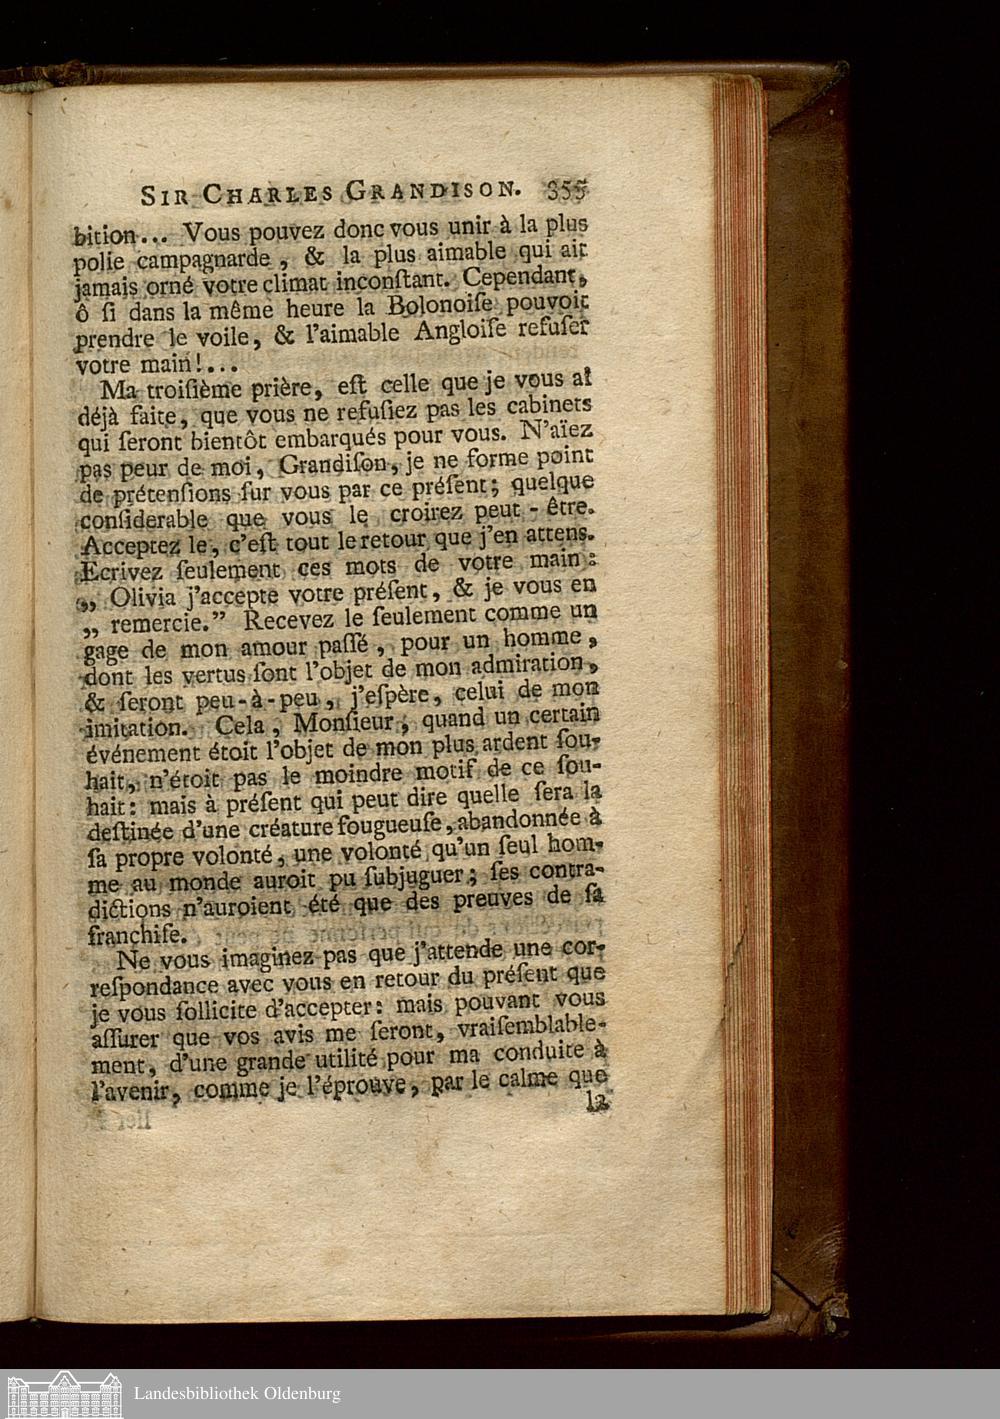 SIR CHARLES GRANDISON. 355
bition... Vous pouvez donc vous unir à la plus
polie campagnarde, & la plus aimable qui ait
jamais orné votre climat inconſtant. Cependant,
ô ſi dans la même heure la Bolonoiſe pouvoit
prendre le voile, & l'aimable Angloiſe refuſer
votre main!...
Ma troiſième prière, eſt celle que je vous ai
déjà faite, que vous ne refuſiez pas les cabinets
qui ſeront bientôt embarqués pour vous. N'aïez
pas peur de moi, Grandiſon, je ne forme point
de prétenſions ſur vous par ce préſent; quelque
conſiderable que vous le croirez peut-être.
Acceptez le, c'eſt tout le retour que j'en attens.
Ecrivez ſeulement ces mots de votre main:
„ Olivia j'accepte votre préſent, & je vous en
„ remercie.” Recevez le ſeulement comme un
gage de mon amour paſſé, pour un homme,
dont les vertus ſont l'objet de mon admiration,
& ſeront peu-à-peu, j'eſpère, celui de mon
imitation. Cela, Monſieur, quand un certain
événement étoit l'objet de mon plus ardent ſou-
hait, n'étoit pas le moindre motif de ce ſou-
hait: mais à préſent qui peut dire quelle ſera la
deſtinée d'une créature fougueuſe, abandonnée à
ſa propre volonté, une volonté qu'un ſeul hom-
me au monde auroit pu ſubjuguer; ſes contra-
dictions n'auroient été que des preuves de ſa
franchiſe.
Ne vous imaginez pas que j'attende une cor-
reſpondance avec vous en retour du préſent que
je vous ſollicite d'accepter: mais pouvant vous
aſſurer que vos avis me ſeront, vraiſemblable-
ment, d'une grande utilité pour ma conduite à
l'avenir, comme je l'éprouve, par le calme que
la
Landesbibliothek Oldenburg